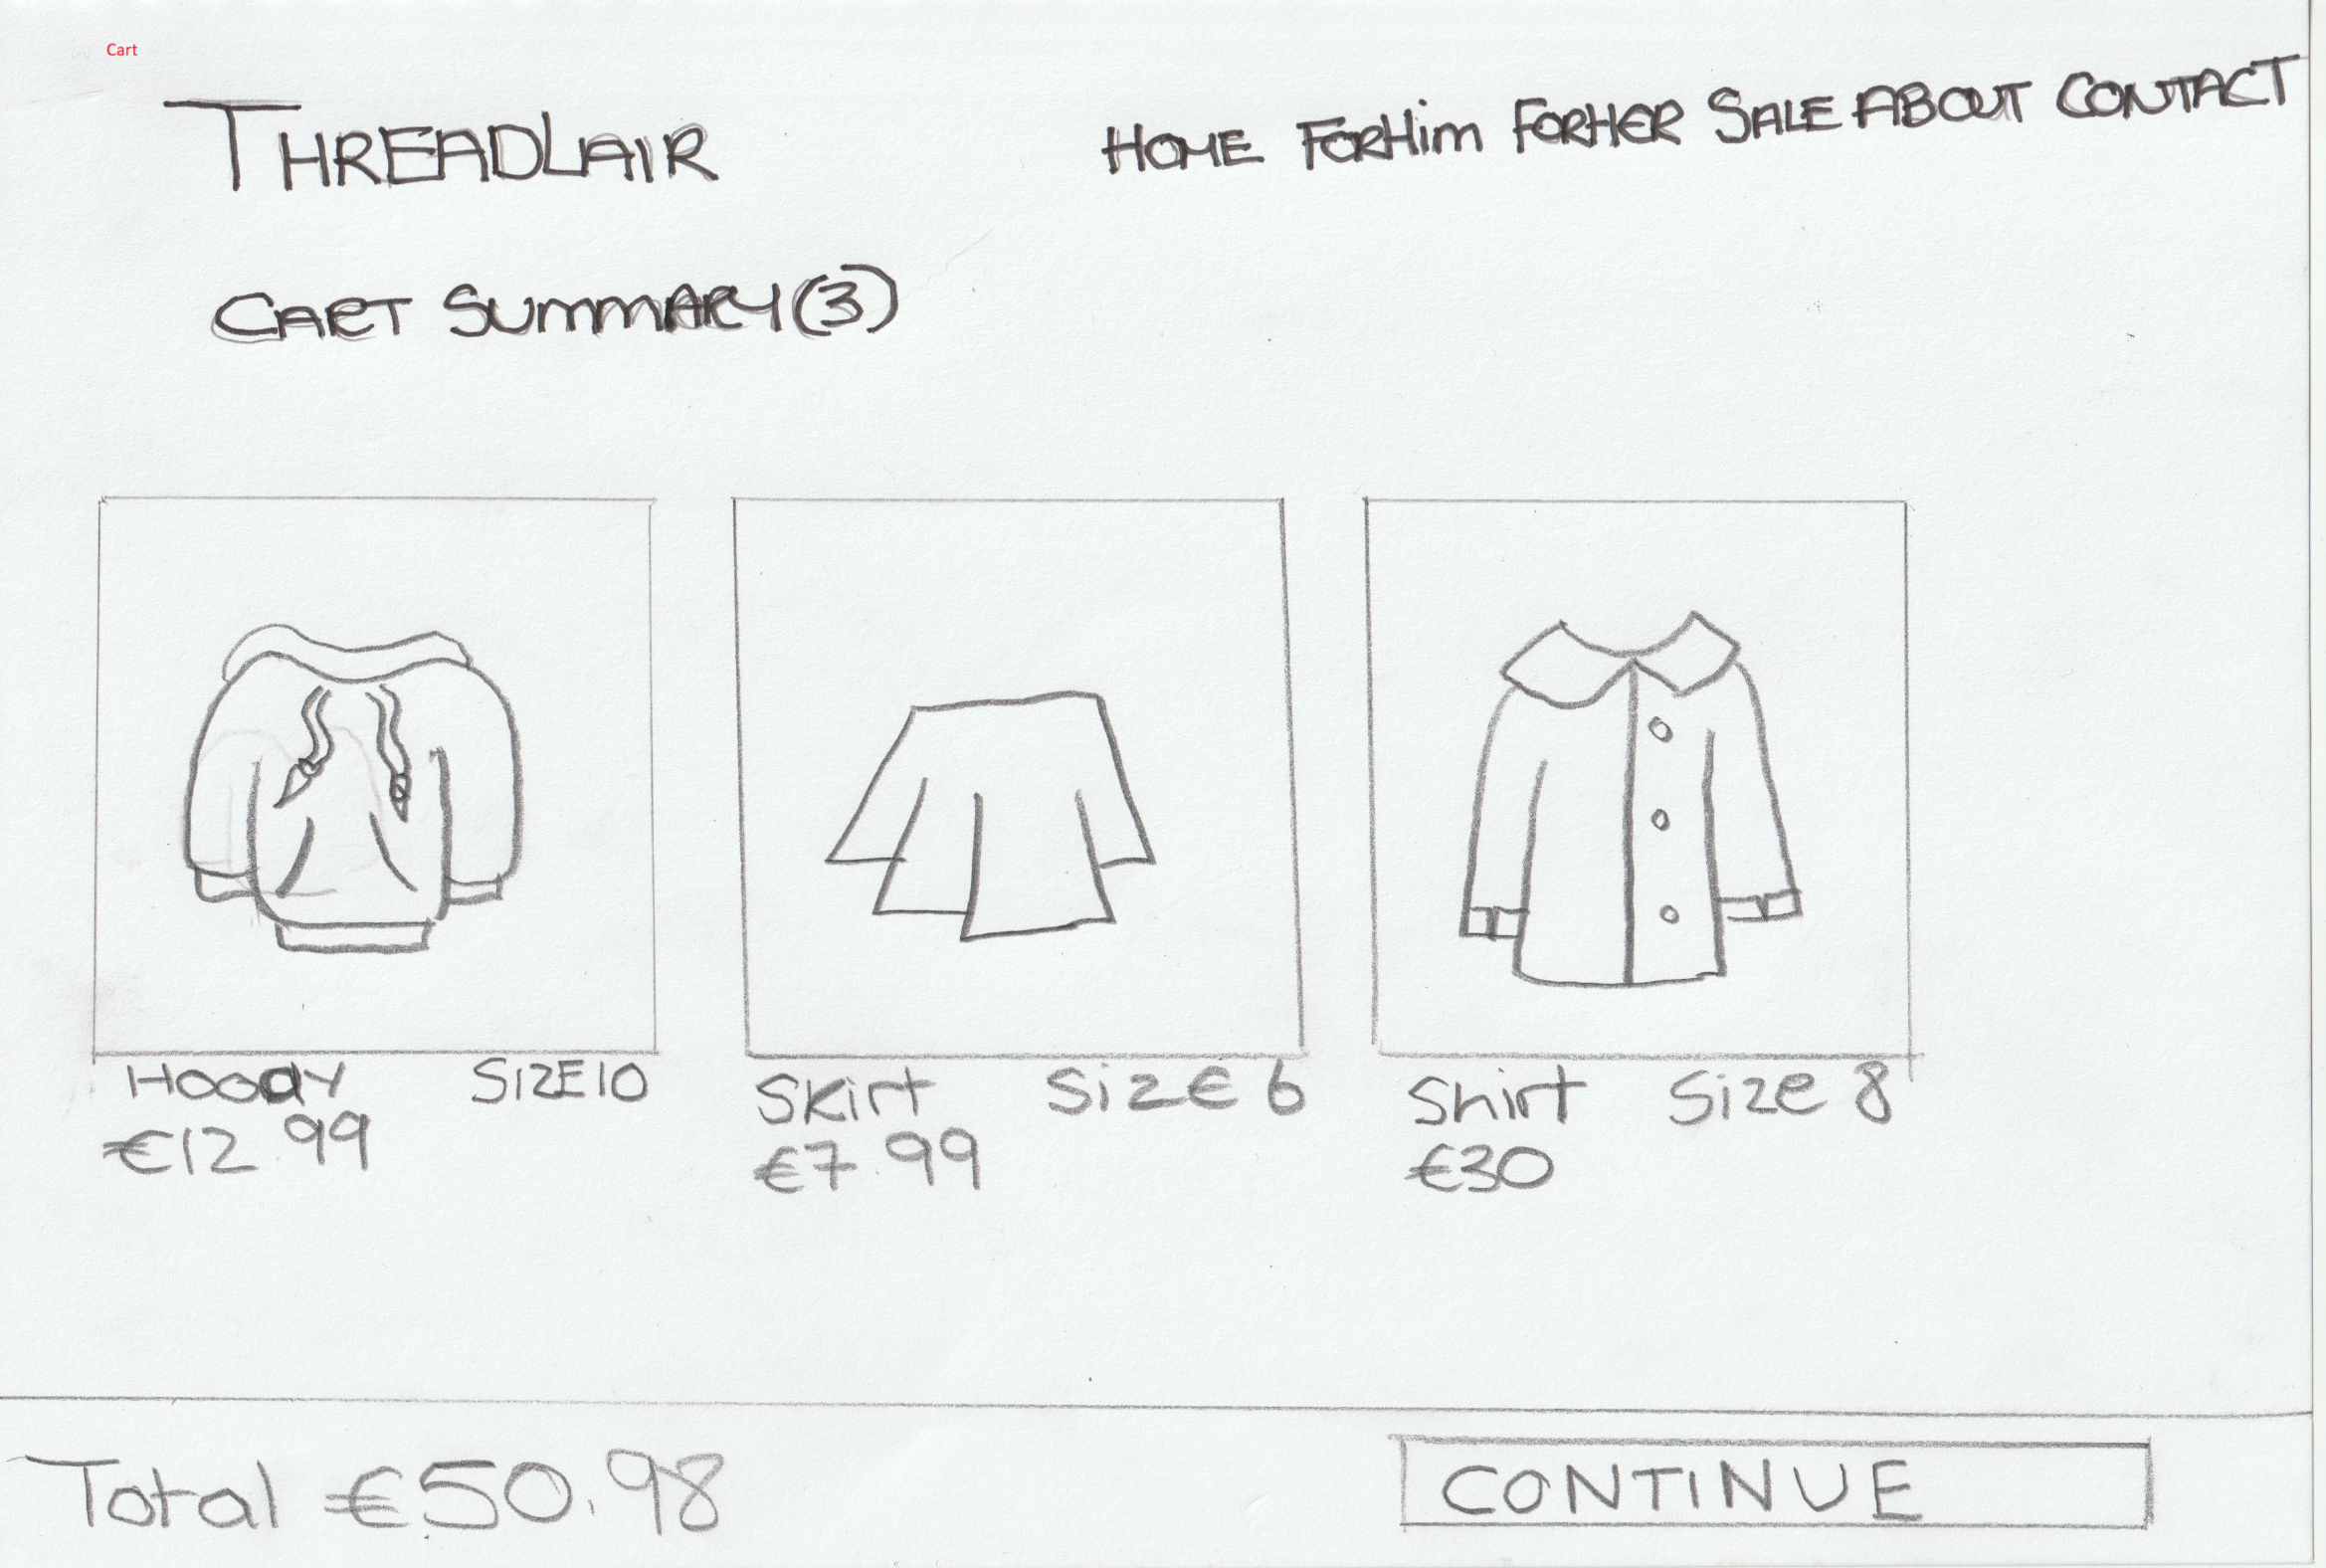 Cart
THREADLAIR
HOME FORHim FORHER SALE ABOUT CONTACT
CART SUMMARY (3)
HOODY SIZE 10
€12.99
Skirt SizE 6
€7.99
Shirt Size 8
€30
Total €50.98
CONTINUE